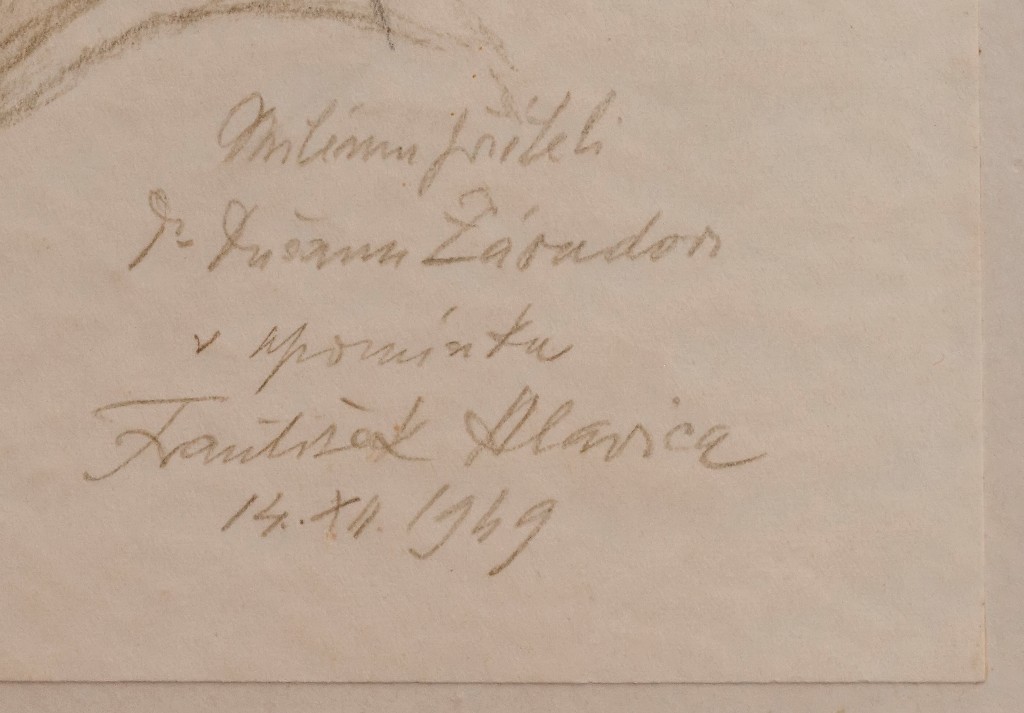 Milému příteli
Dr Dušanu
v upomínku
František Hlavica
14. XII. 1949